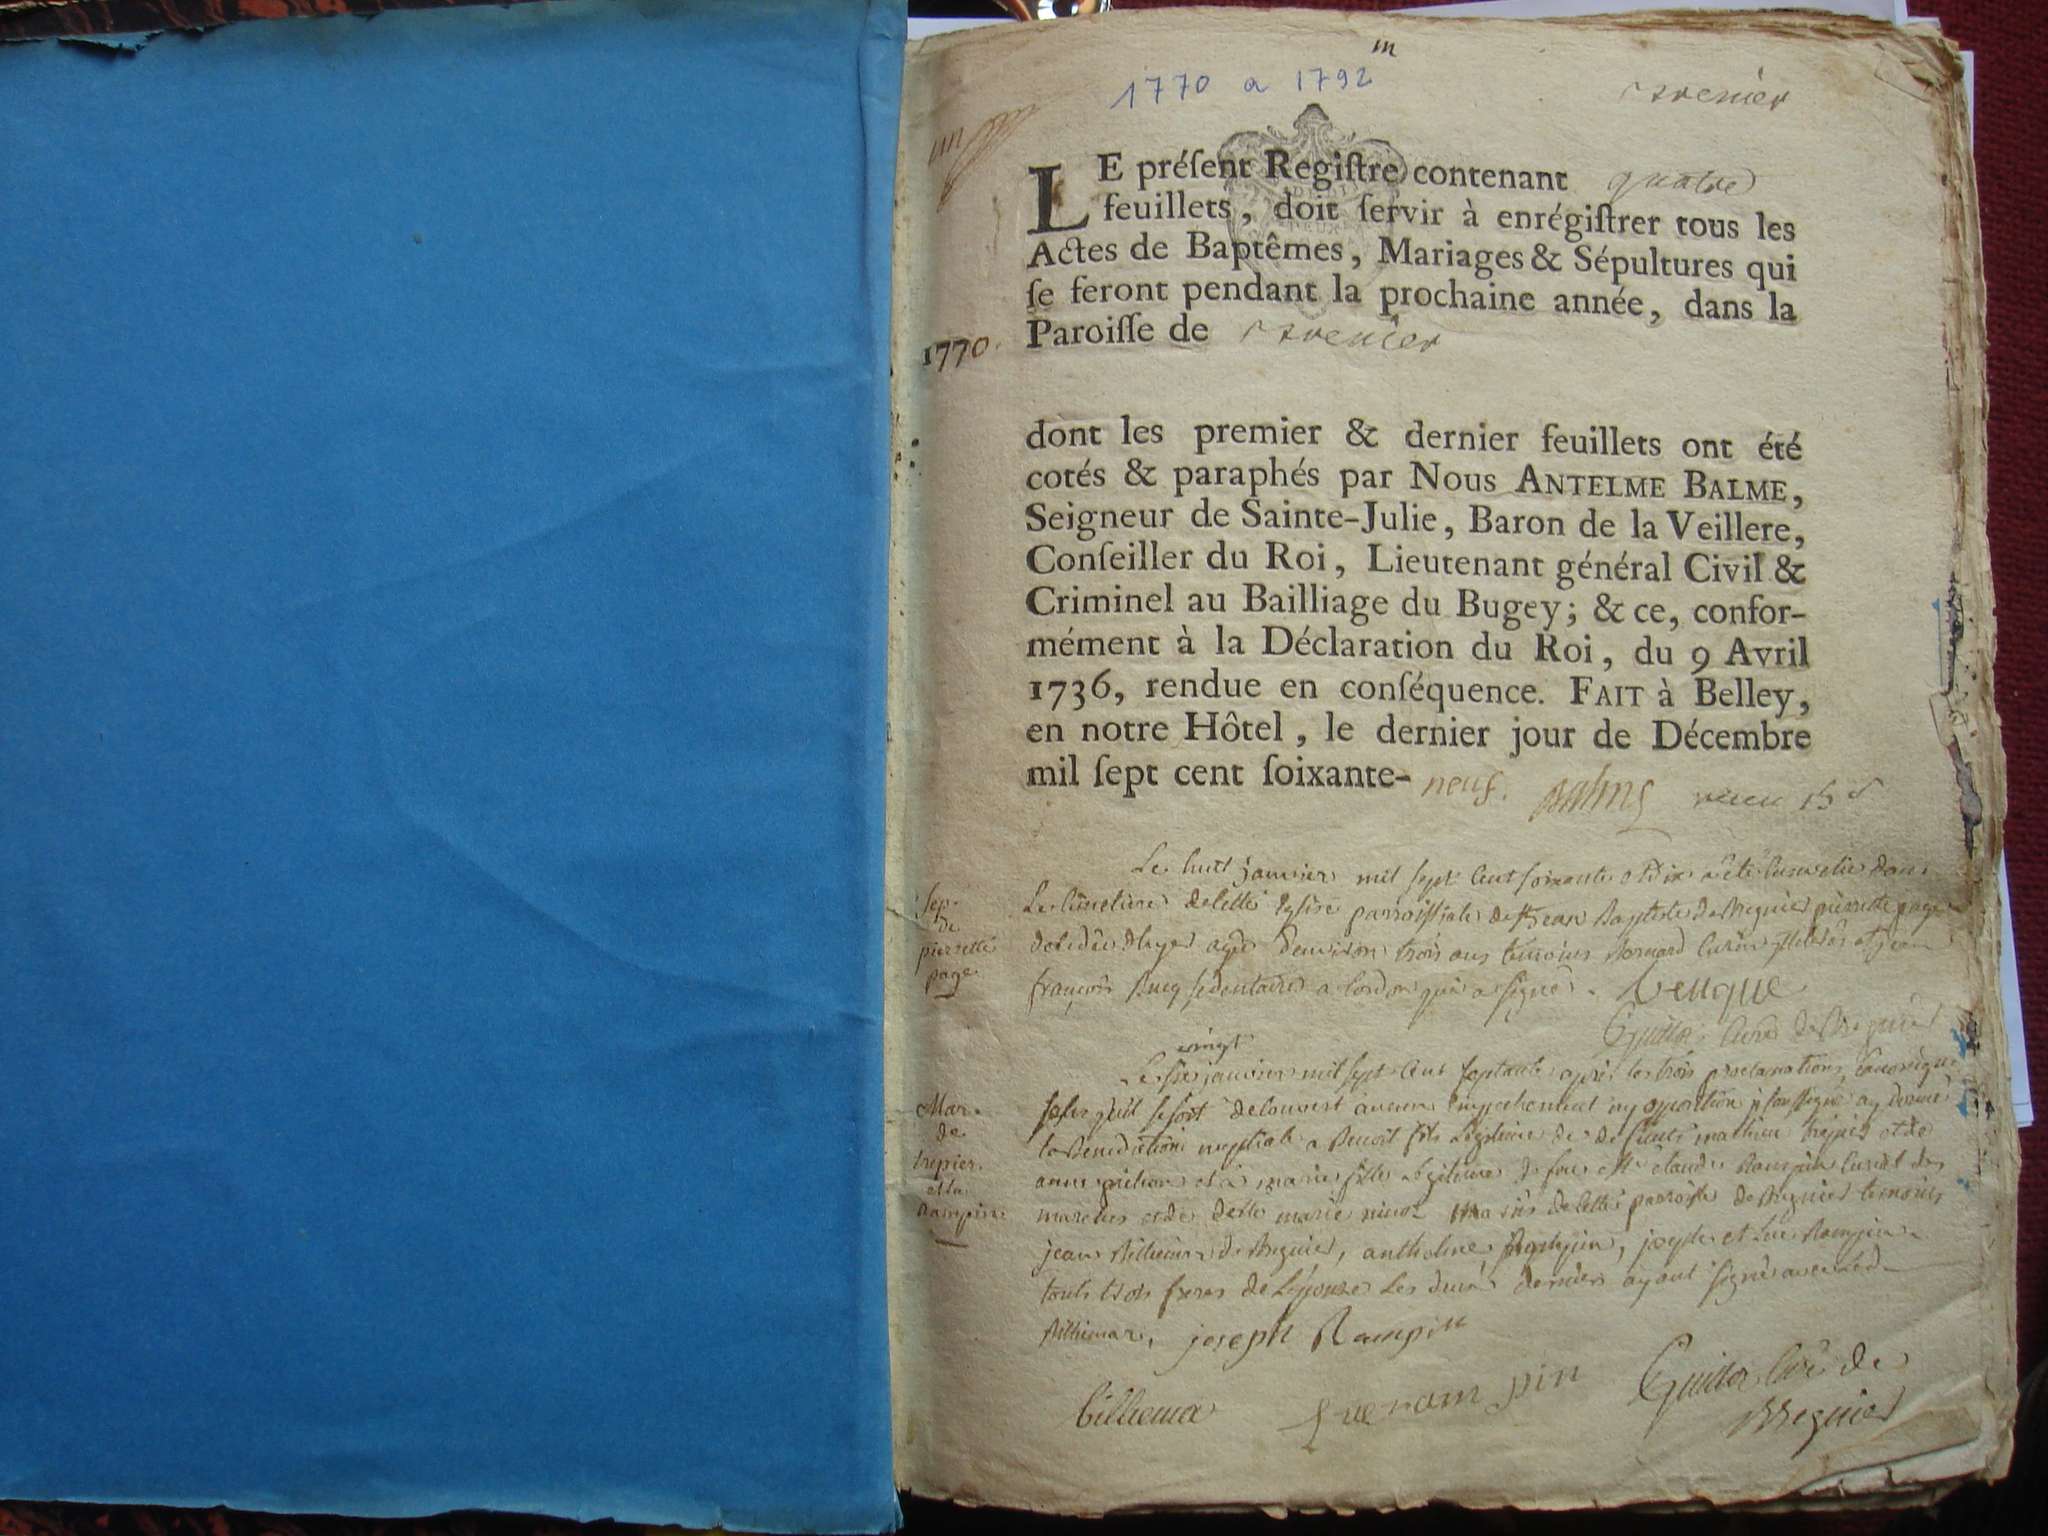 1770 a 1792
LE préſent Regiſtre contenant quatre
feuillets, doit ſervir à enrégiſtrer tous les
Actes de Baptêmes, Mariages & Sépultures qui
ſe feront pendant la prochaine année, dans la
Paroiſſe de
1770.
dont les premier & dernier feuillets ont été
cotés & paraphés par Nous ANTELME BALME,
Seigneur de Sainte-Julie, Baron de la Veillere,
Conſeiller du Roi, Lieutenant général Civil &
Criminel au Bailliage du Bugey; & ce, confor-
mément à la Déclaration du Roi, du 9 Avril
1736, rendue en conſéquence. FAIT à Belley,
en notre Hôtel, le dernier jour de Décembre
mil ſept cent ſoixante-neuf. Balme
Le huit janvier mil sept cent soixante et dix a été dans
Sep.
de
pierrette
page
Le cimetiere de cette Eglise parroissiale de St jean Baptiste de Bregnier pierrette page
agé d'environ trois ans temoins Bernard et jean
françois sedentaire a Cordon qui a signé.
Guillot curé de Bregnier
vingt
Le six janvier mil sept cent septante après les trois proclamations
Mar.
de
trepier
et la
Rampin
sans qu'il se soit decouvert aucun empechement ny opposition je soussigné ay donné
la Benediction nuptiale a Benoit fils Légitime de defunts mathieu trepier et de
anne et a marie fille Légitime de feu claude Rampin
et de marie de cette parroisse de Bregnier temoins
jean Billiema de Bregnier, anthelme Rampin, joseph et Luc Rampin
touts trois freres de L'épouse Les deux derniers ayant signé avec led.
Billiema, joseph Rampin
billiema Luc rampin Guillot curé de
Bregnier